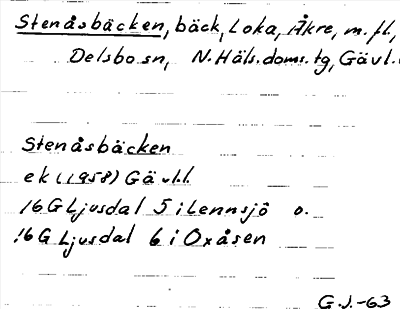 Stenåsbäcken, bäck, Loka, Åkre, m.fl.,
Delsbo sn, N. Häls. doms. tg, Gävl.
Stenåsbäcken
ek (1958) Gävl.l.
16 G Ljusdal 5 i Lennsjö o.
16 G Ljusdal 6 i Oxåsen
G.J.-63